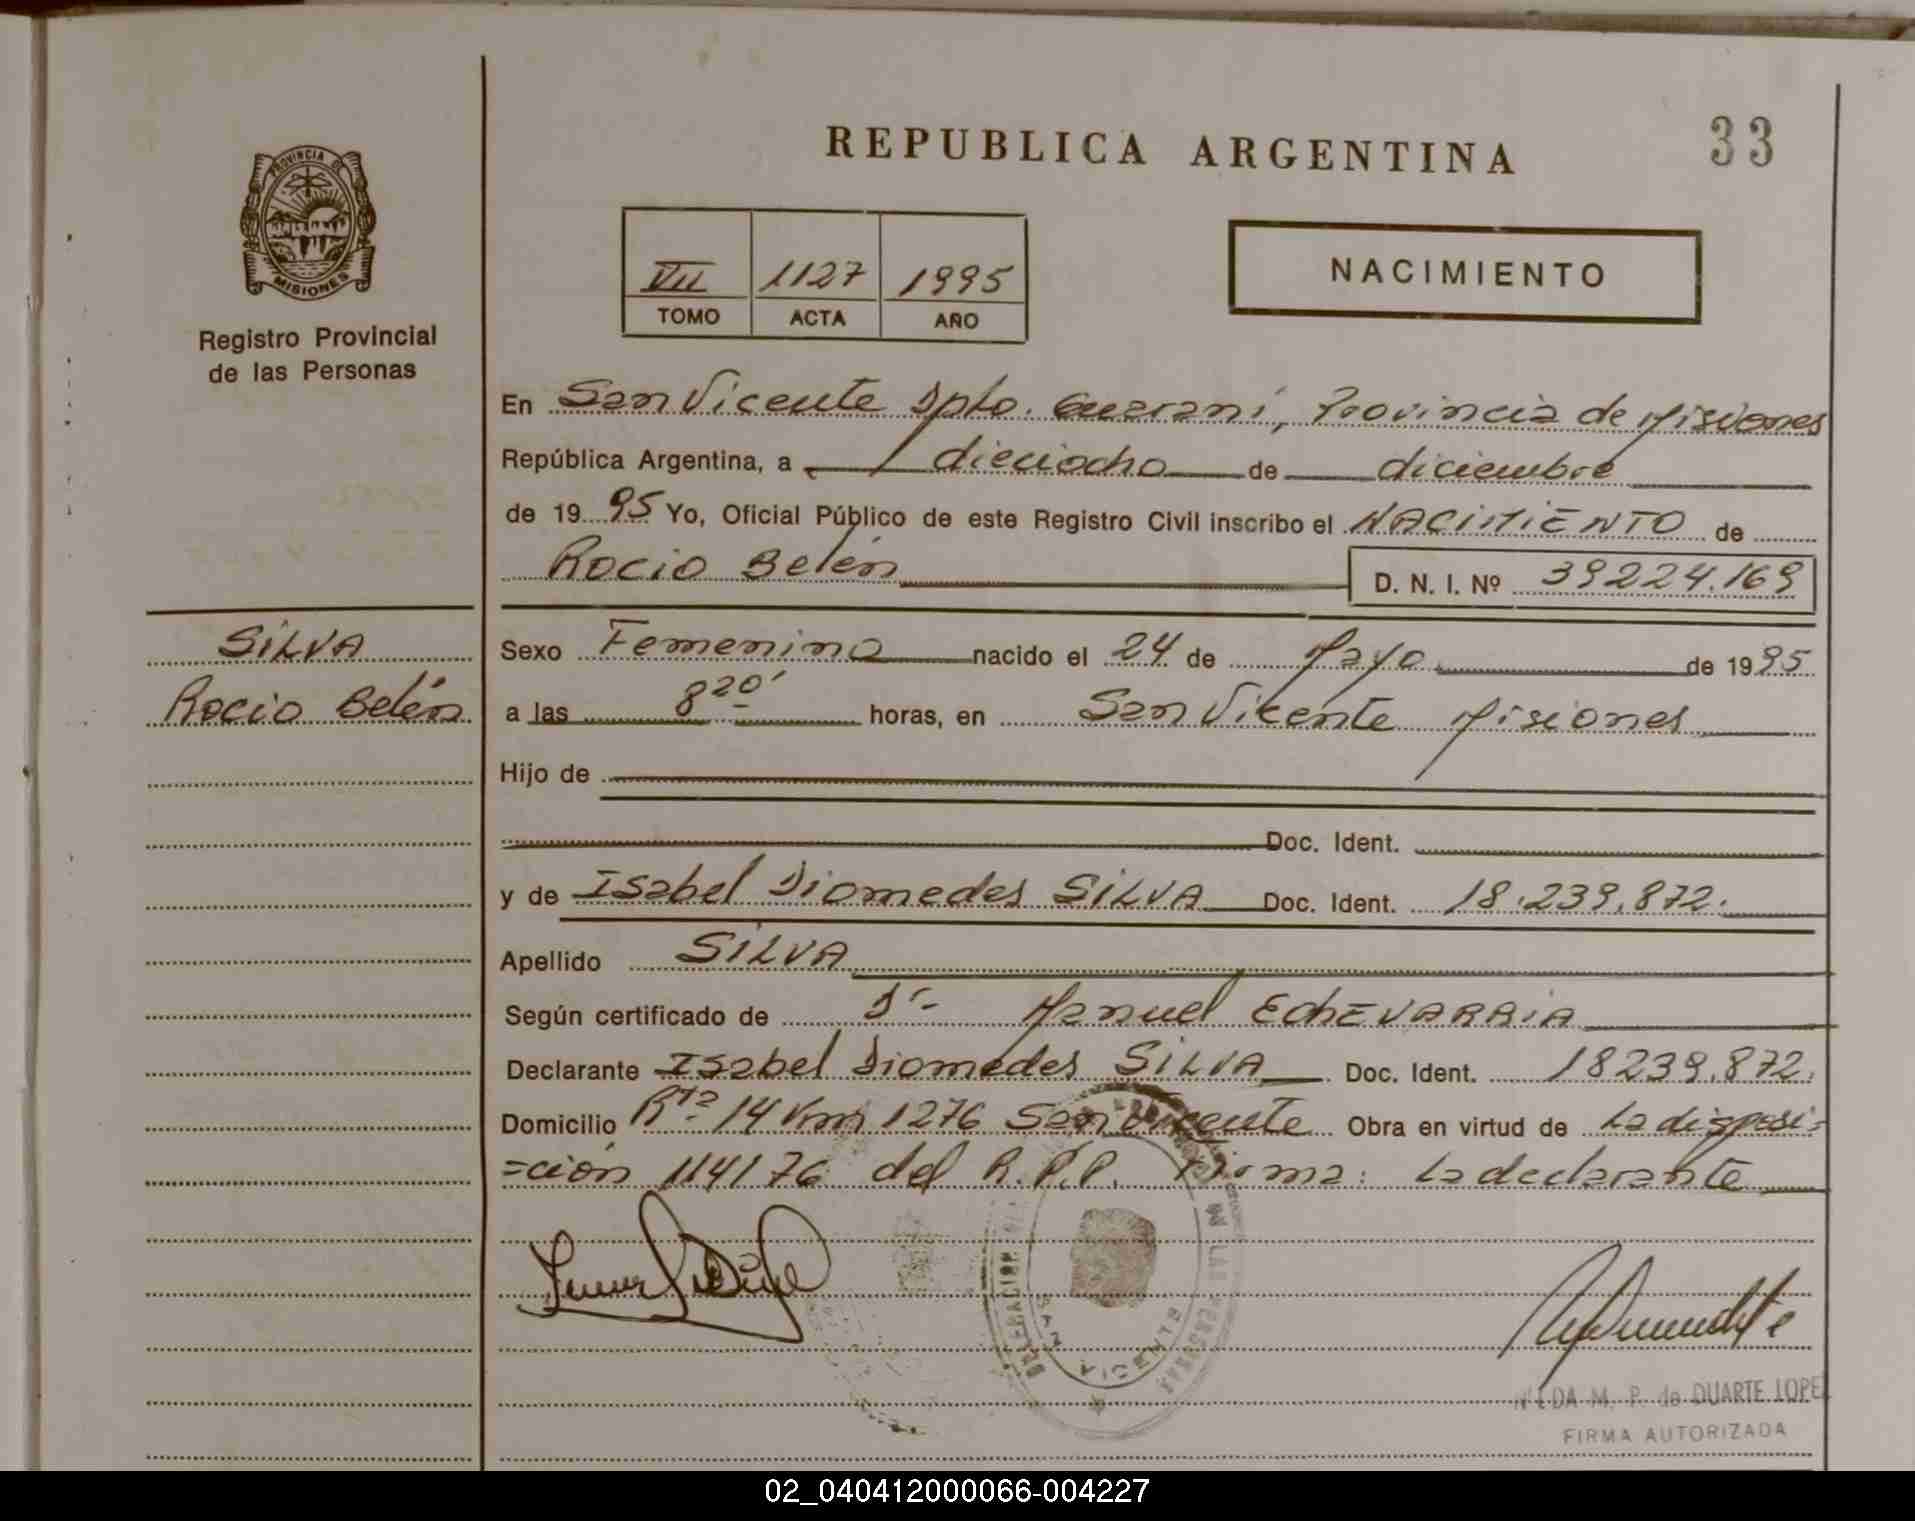 REPUBLICA ARGENTINA
33
PROVINCIA DE
MISIONES
Registro Provincial
de las Personas
VII 1127 1995
TOMO ACTA AÑO
NACIMIENTO
En San Vicente Dpto. Guaraní, Provincia de Misiones
República Argentina, a dieciocho de diciembre
de 19 95 Yo, Oficial Público de este Registro Civil inscribo el NACIMIENTO de
Rocio Belén D. N. I. Nº 39224.169
SILVA
Rocio Belén
Sexo Femenino nacido el 24 de Mayo de 19 95
a las 8 20' horas, en San Vicente Misiones
Hijo de
Doc. Ident.
y de Isabel Diomedes SILVA Doc. Ident. 18.239.872.
Apellido SILVA
Según certificado de Dr. Manuel ECHEVARRIA
Declarante Isabel Diomedes SILVA Doc. Ident. 18239.872.
Domicilio Rta 14 Km 1276 San Vicente Obra en virtud de La disposi=
=ción 114/76 del R.P.P. Firma: La declarante
DELEGACION
DE LAS PERSONAS
SAN VICENTE
M. P. de DUARTE LOPEZ
FIRMA AUTORIZADA
02_040412000066-004227